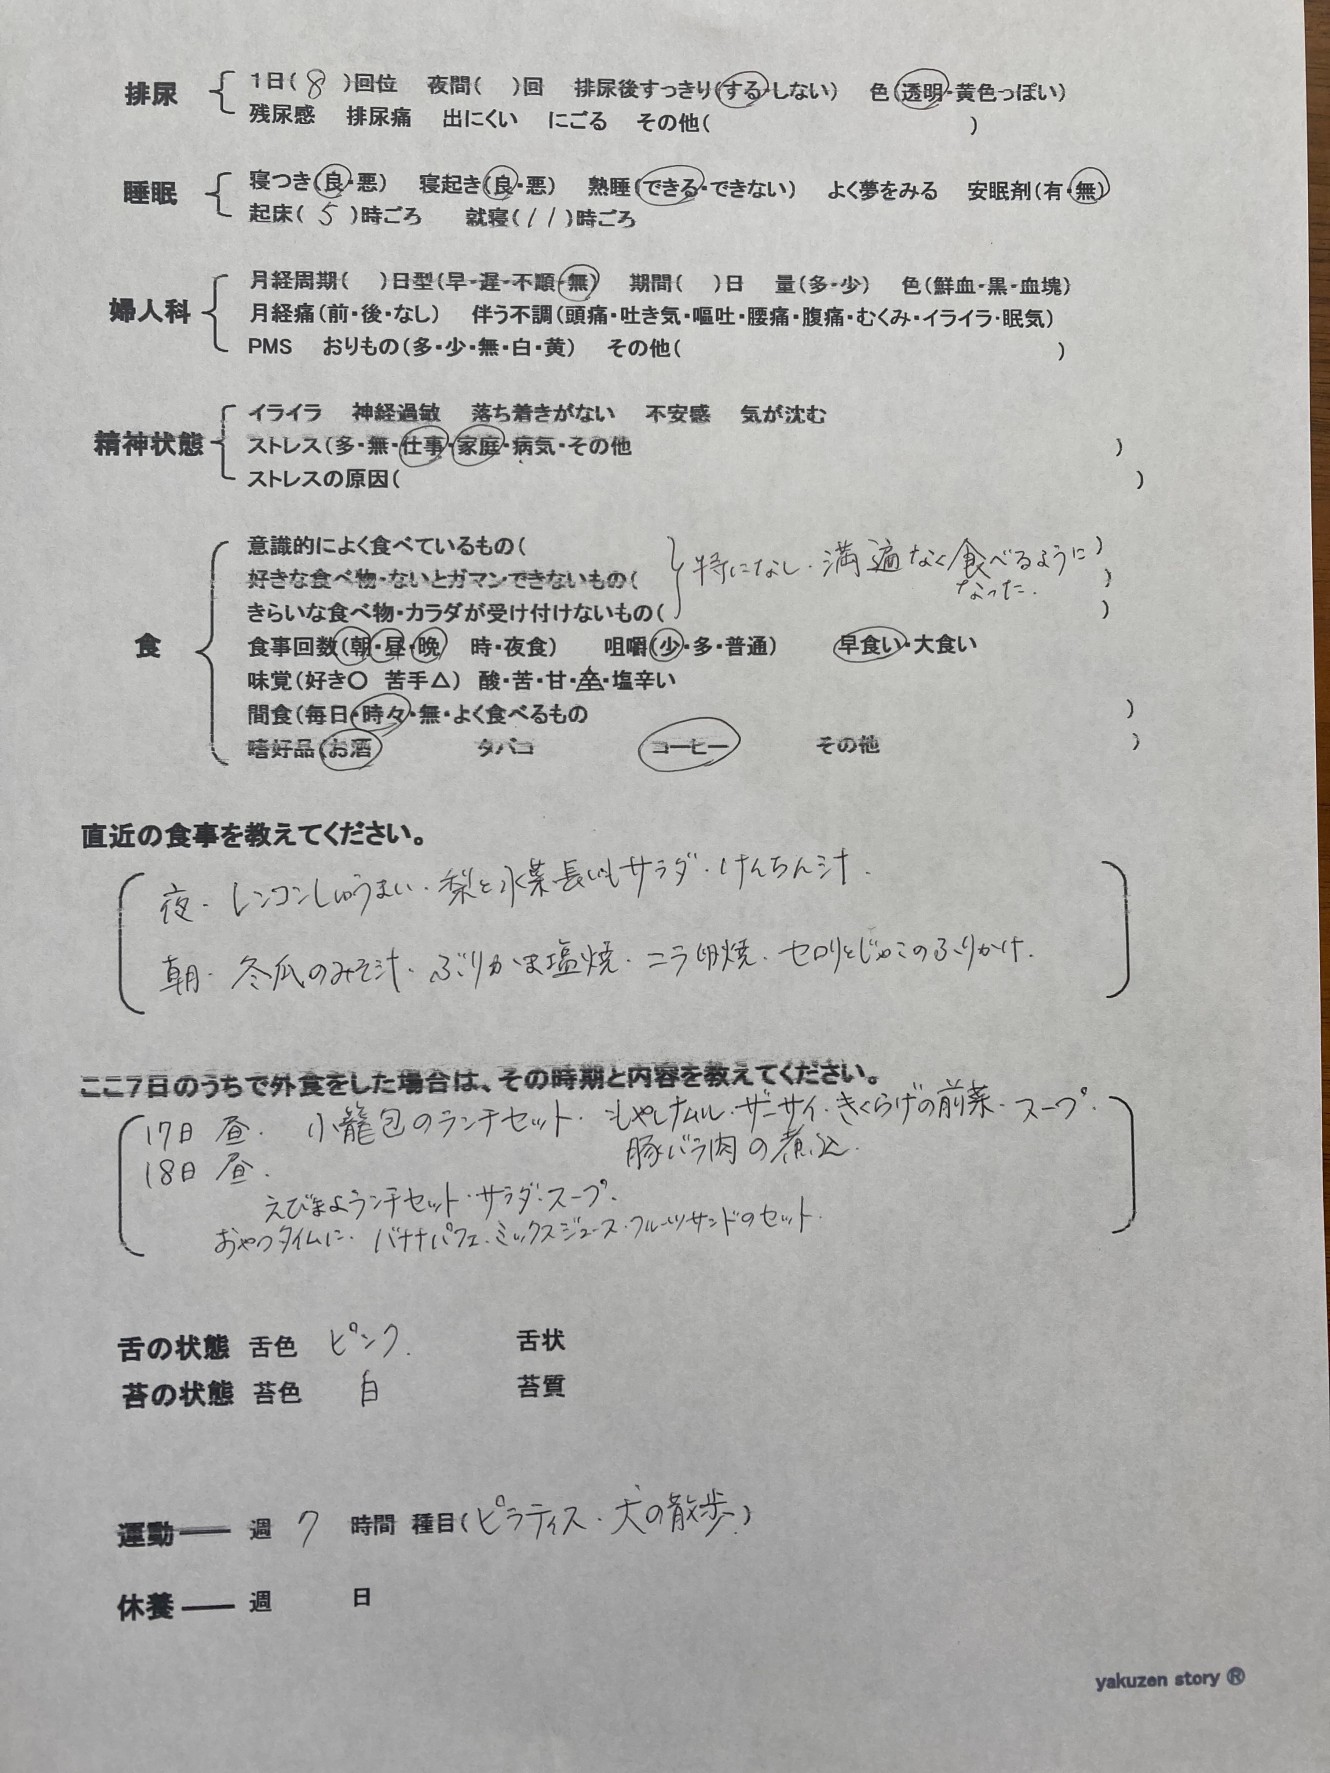 排尿 1日( 8 )回位 夜間( )回 排尿後すっきり(する・しない) 色(透明・黄色っぽい)
残尿感 排尿痛 出にくい にごる その他( )
睡眠 寝つき(良・悪) 寝起き(良・悪) 熟睡(できる・できない) よく夢をみる 安眠剤(有・無)
起床( 5 )時ごろ 就寝( 11 )時ごろ
婦人科 月経周期( )日型(早・遅・不順・無) 期間( )日 量(多・少) 色(鮮血・黒・血塊)
月経痛(前・後・なし) 伴う不調(頭痛・吐き気・嘔吐・腰痛・腹痛・むくみ・イライラ・眠気)
PMS おりもの(多・少・無・白・黄) その他( )
精神状態 イライラ 神経過敏 落ち着きがない 不安感 気が沈む
ストレス(多・無・仕事・家庭・病気・その他 )
ストレスの原因( )
食 意識的によく食べているもの( )
好きな食べ物・ないとガマンできないもの( )
きらいな食べ物・カラダが受け付けないもの( )
特になし・満遍なく食べるように
なった.
食事回数(朝・昼・晩 時・夜食) 咀嚼(少・多・普通) 早食い・大食い
味覚(好き○ 苦手△) 酸・苦・甘・辛・塩辛い
間食(毎日・時々・無・よく食べるもの )
嗜好品(お酒 タバコ コーヒー その他 )
直近の食事を教えてください。
夜・レンコンしゅうまい・梨と水菜長いもサラダ・けんちん汁.
朝・冬瓜のみそ汁・ぶりかま塩焼・ニラ卵焼・セロリとじゃこのふりかけ.
ここ7日のうちで外食をした場合は、その時期と内容を教えてください。
17日 昼. 小籠包のランチセット・もやしナムル・ザーサイ・きくらげの前菜・スープ.
豚バラ肉の煮込.
18日 昼.
えびまよランチセット・サラダ・スープ.
おやつタイムに・バナナパフェ・ミックスジュース・フルーツサンドのセット.
舌の状態 舌色 ピンク. 舌状
苔の状態 苔色 白 苔質
運動 ― 週 7 時間 種目(ピラティス・犬の散歩.)
休養 ― 週 日
yakuzen story ®